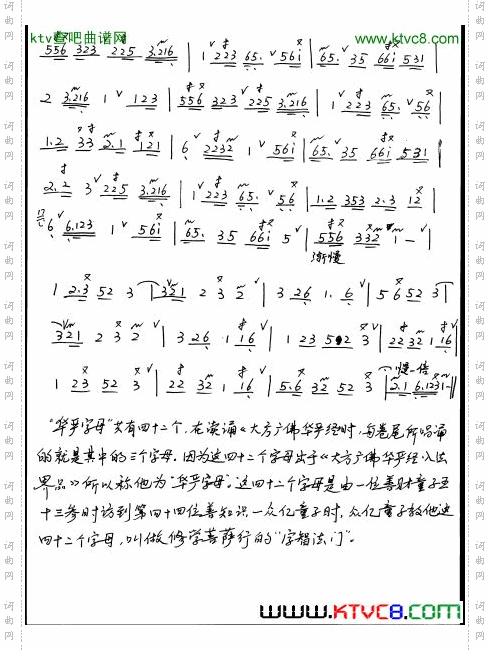 ktv查吧曲谱网
www.ktvc8.com
556 323 225 3.216 | 1 223 65. 56i | 65. 35 66i 531
2 3.216 1 123 | 556 323 225 3.216 | 1 223 65. 56
1.2 33 2.1 121 | 6 2232 1 56i | 65. 35 66i 531
2.2 3 225 3.216 | 1 223 65. 56 | 1.2 353 2.3 12
6 6.123 1 56i | 65. 35 66i 5 | 556 332 1 - |
渐慢
1 2.3 52 3 | 321 2 3 2 | 3 26 1. 6 | 5 6 52 3 |
321 2 3 2 | 3 26 1 16 | 1 23 52 3 | 22 32 1 16
慢一倍
1 23 52 3 | 22 32 1 16 | 5.6 32 52 3 | 2.1 6.123 1 - ‖
“华严字母”共有四十二个,在读诵《大方广佛华严经》时,每卷尾所唱诵
的就是其中的三个字母。因为这四十二个字母出于《大方广佛华严经·入法
界品》所以称他为“华严字母”。这四十二个字母是由一位善财童子五
十三参时访到第四十四位善知识—众艺童子时,众艺童子教他这
四十二个字母,叫做修学菩萨行的“字智法门”。
www.KTVC8.com
词曲网